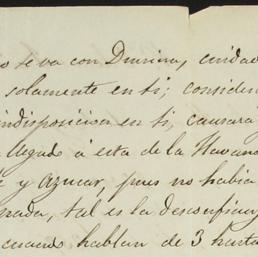 o se va con Dmna, cuidad
solamente en ti; consider
indisposicion en ti, causara
llegado á esta de la Havana
y Azucar, pues no habia
rada, tal es la desconfianz
cuando hablan de 3 hasta